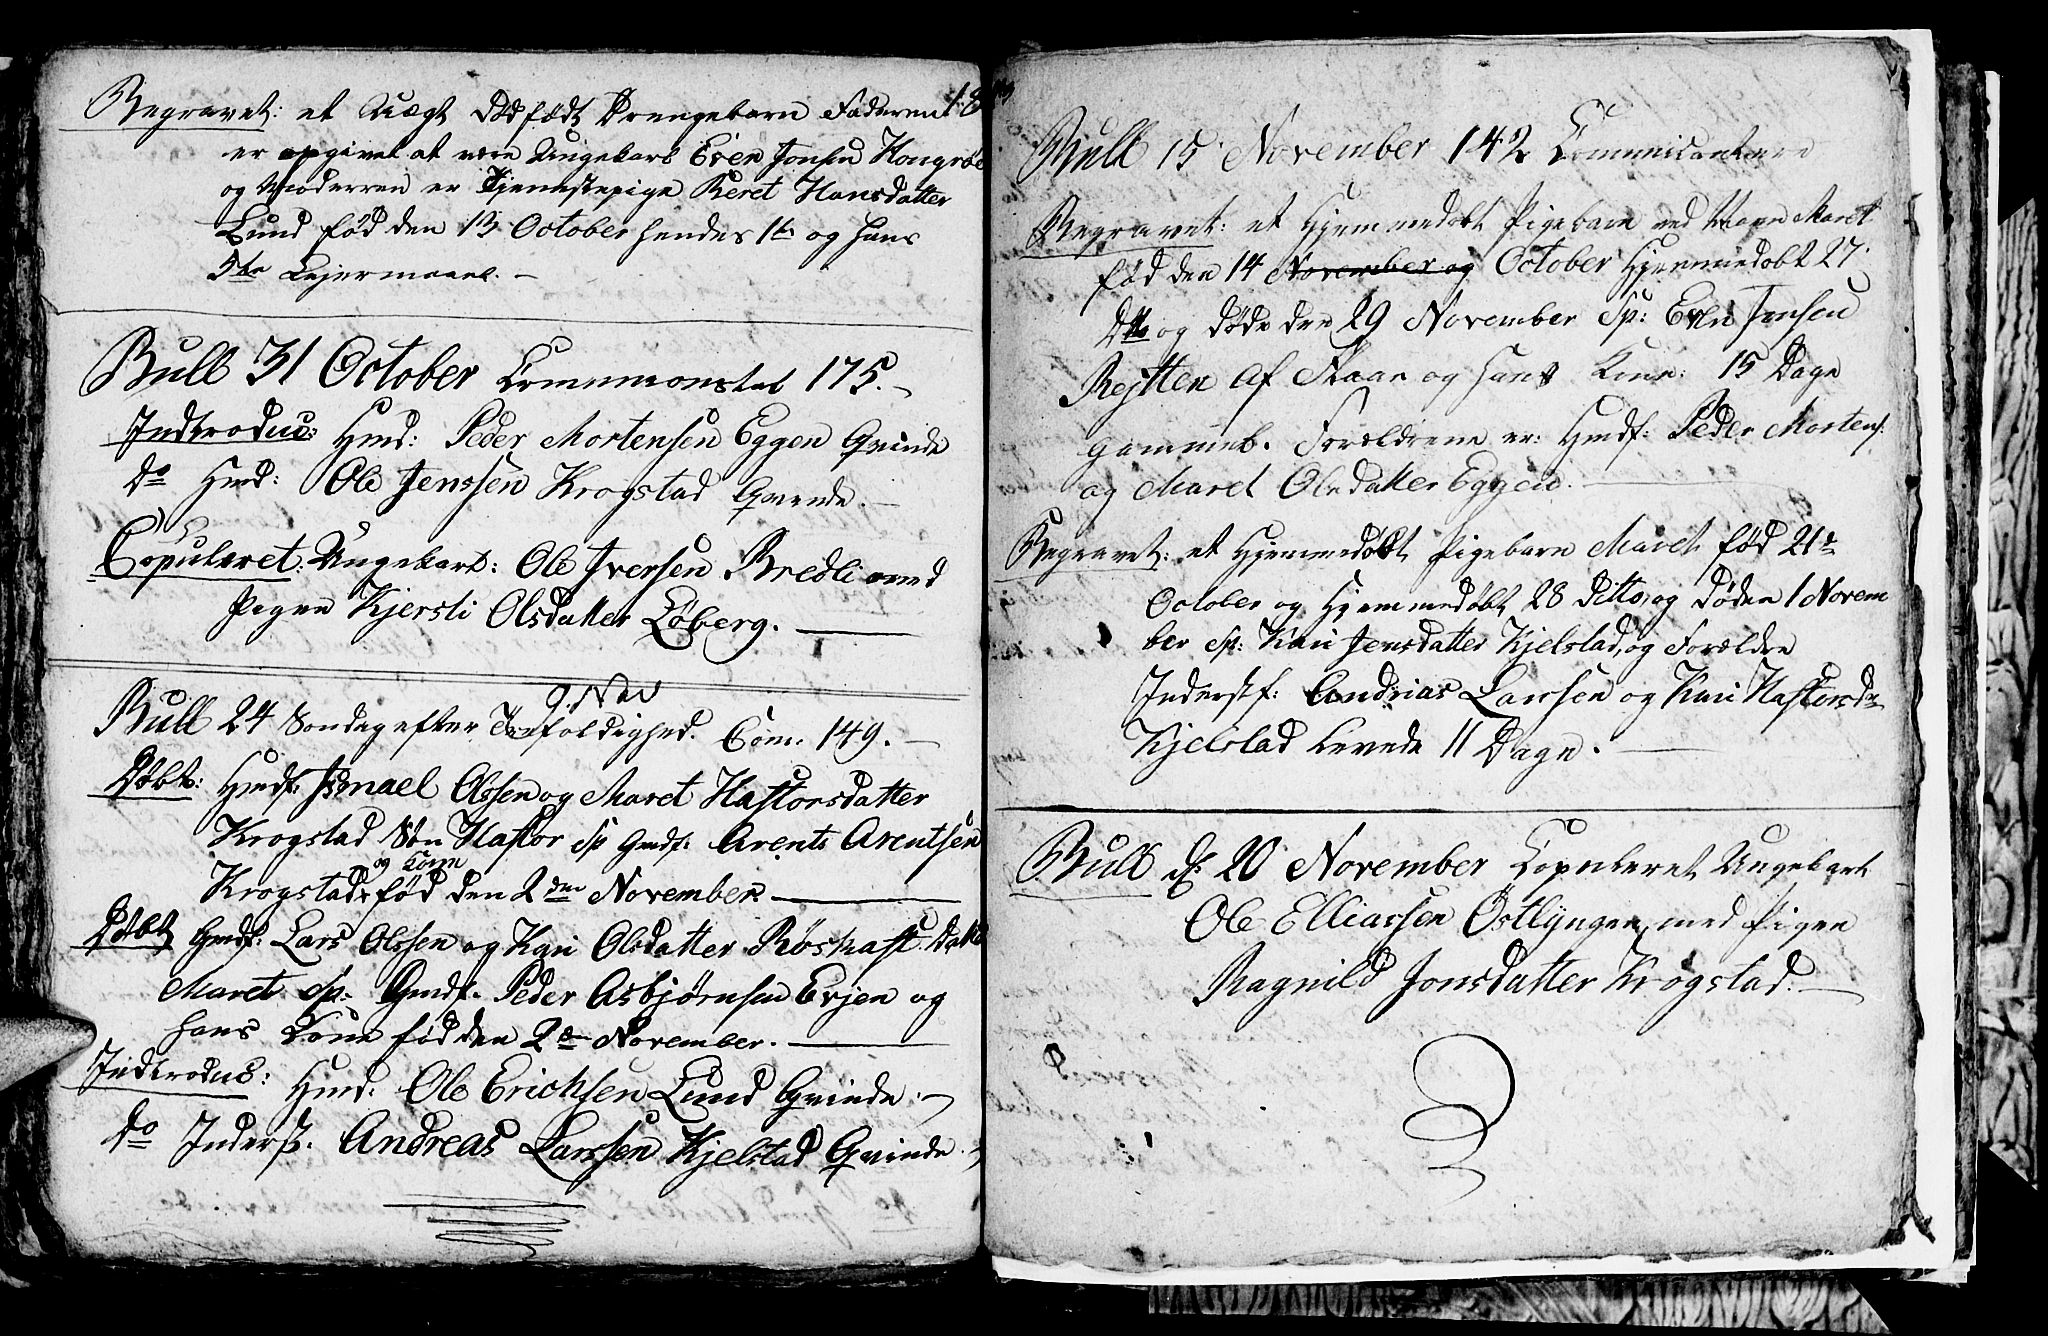 Begravet: et Uægt Dødfødt Drengebarn Faderen
er opgivet at være Ungekarl Even Jonsen
og Moderren er Tjenestepige Beret Hansdatter
Lund fød den 13 October hendes 1te og hans
5te Lejermaael. —
Bull 31 October 175. —
Indtroduc: Hmd: Peder Mortensen Eggen Qvinde
do Hmd: Ole Jenssen Krogstad Qvinde. —
Copuleret: Ungekarl: Ole Iversen Bredli med
Pigen Kjersti Olsdatter Løberg. —
9. Nov
Bull 24 Søndag efter Trefoldighed. Com. 149. —
Døbt: Hmdf. Ismael Olssen og Maret Hastorsdatter
Krogstad Søn Hastor Sp Gmdf: Arents Arentsen
og Kone
Krogstad, fød den 2den November —
Døbt Gmdf: Lars Olssen og Kari Olsdatter Røskaft
Maret Sp: Gmdf. Peder Asbjørnsen Evjen og
hans Kone fød den 2den November. —
Indtroduc: Hmd: Ole Erichsen Lund Qvinde. —
do Inderst. Andreas Larssen Kjelstad Qvinde. —
Bull 15 November 142 Communicantere
Begravet: et Hjemmedøbt Pigebarn ved Navn Maret
fød den 14 November og October Hjemmedøbt 27.
Dto og døde den 29 November Sp: Even Jensen
Rejtten af Skaar og hans Kone: 15 Dage
gammel. Forældrene er: Hmdf: Peder Mortens:
og Maret Olsdatter Eggen. —
Begravet: et Hjemmedøbt Pigebarn Maret fød 21e
October og Hjemmedøbt 28 Ditto, og Døden 1 Novem
ber Sp: Kari Jensdatter Kjelstad, og Forældre
Inderstf: Andrias Larssen og Kari Hastorsdr
Kjelstad Levede 11 Dage. —
Bull d: 20 November Copuleret Ungekarl
Ole Elliassen Østlyngen med Pigen
Ragnild Jonsdatter Krogstad. —